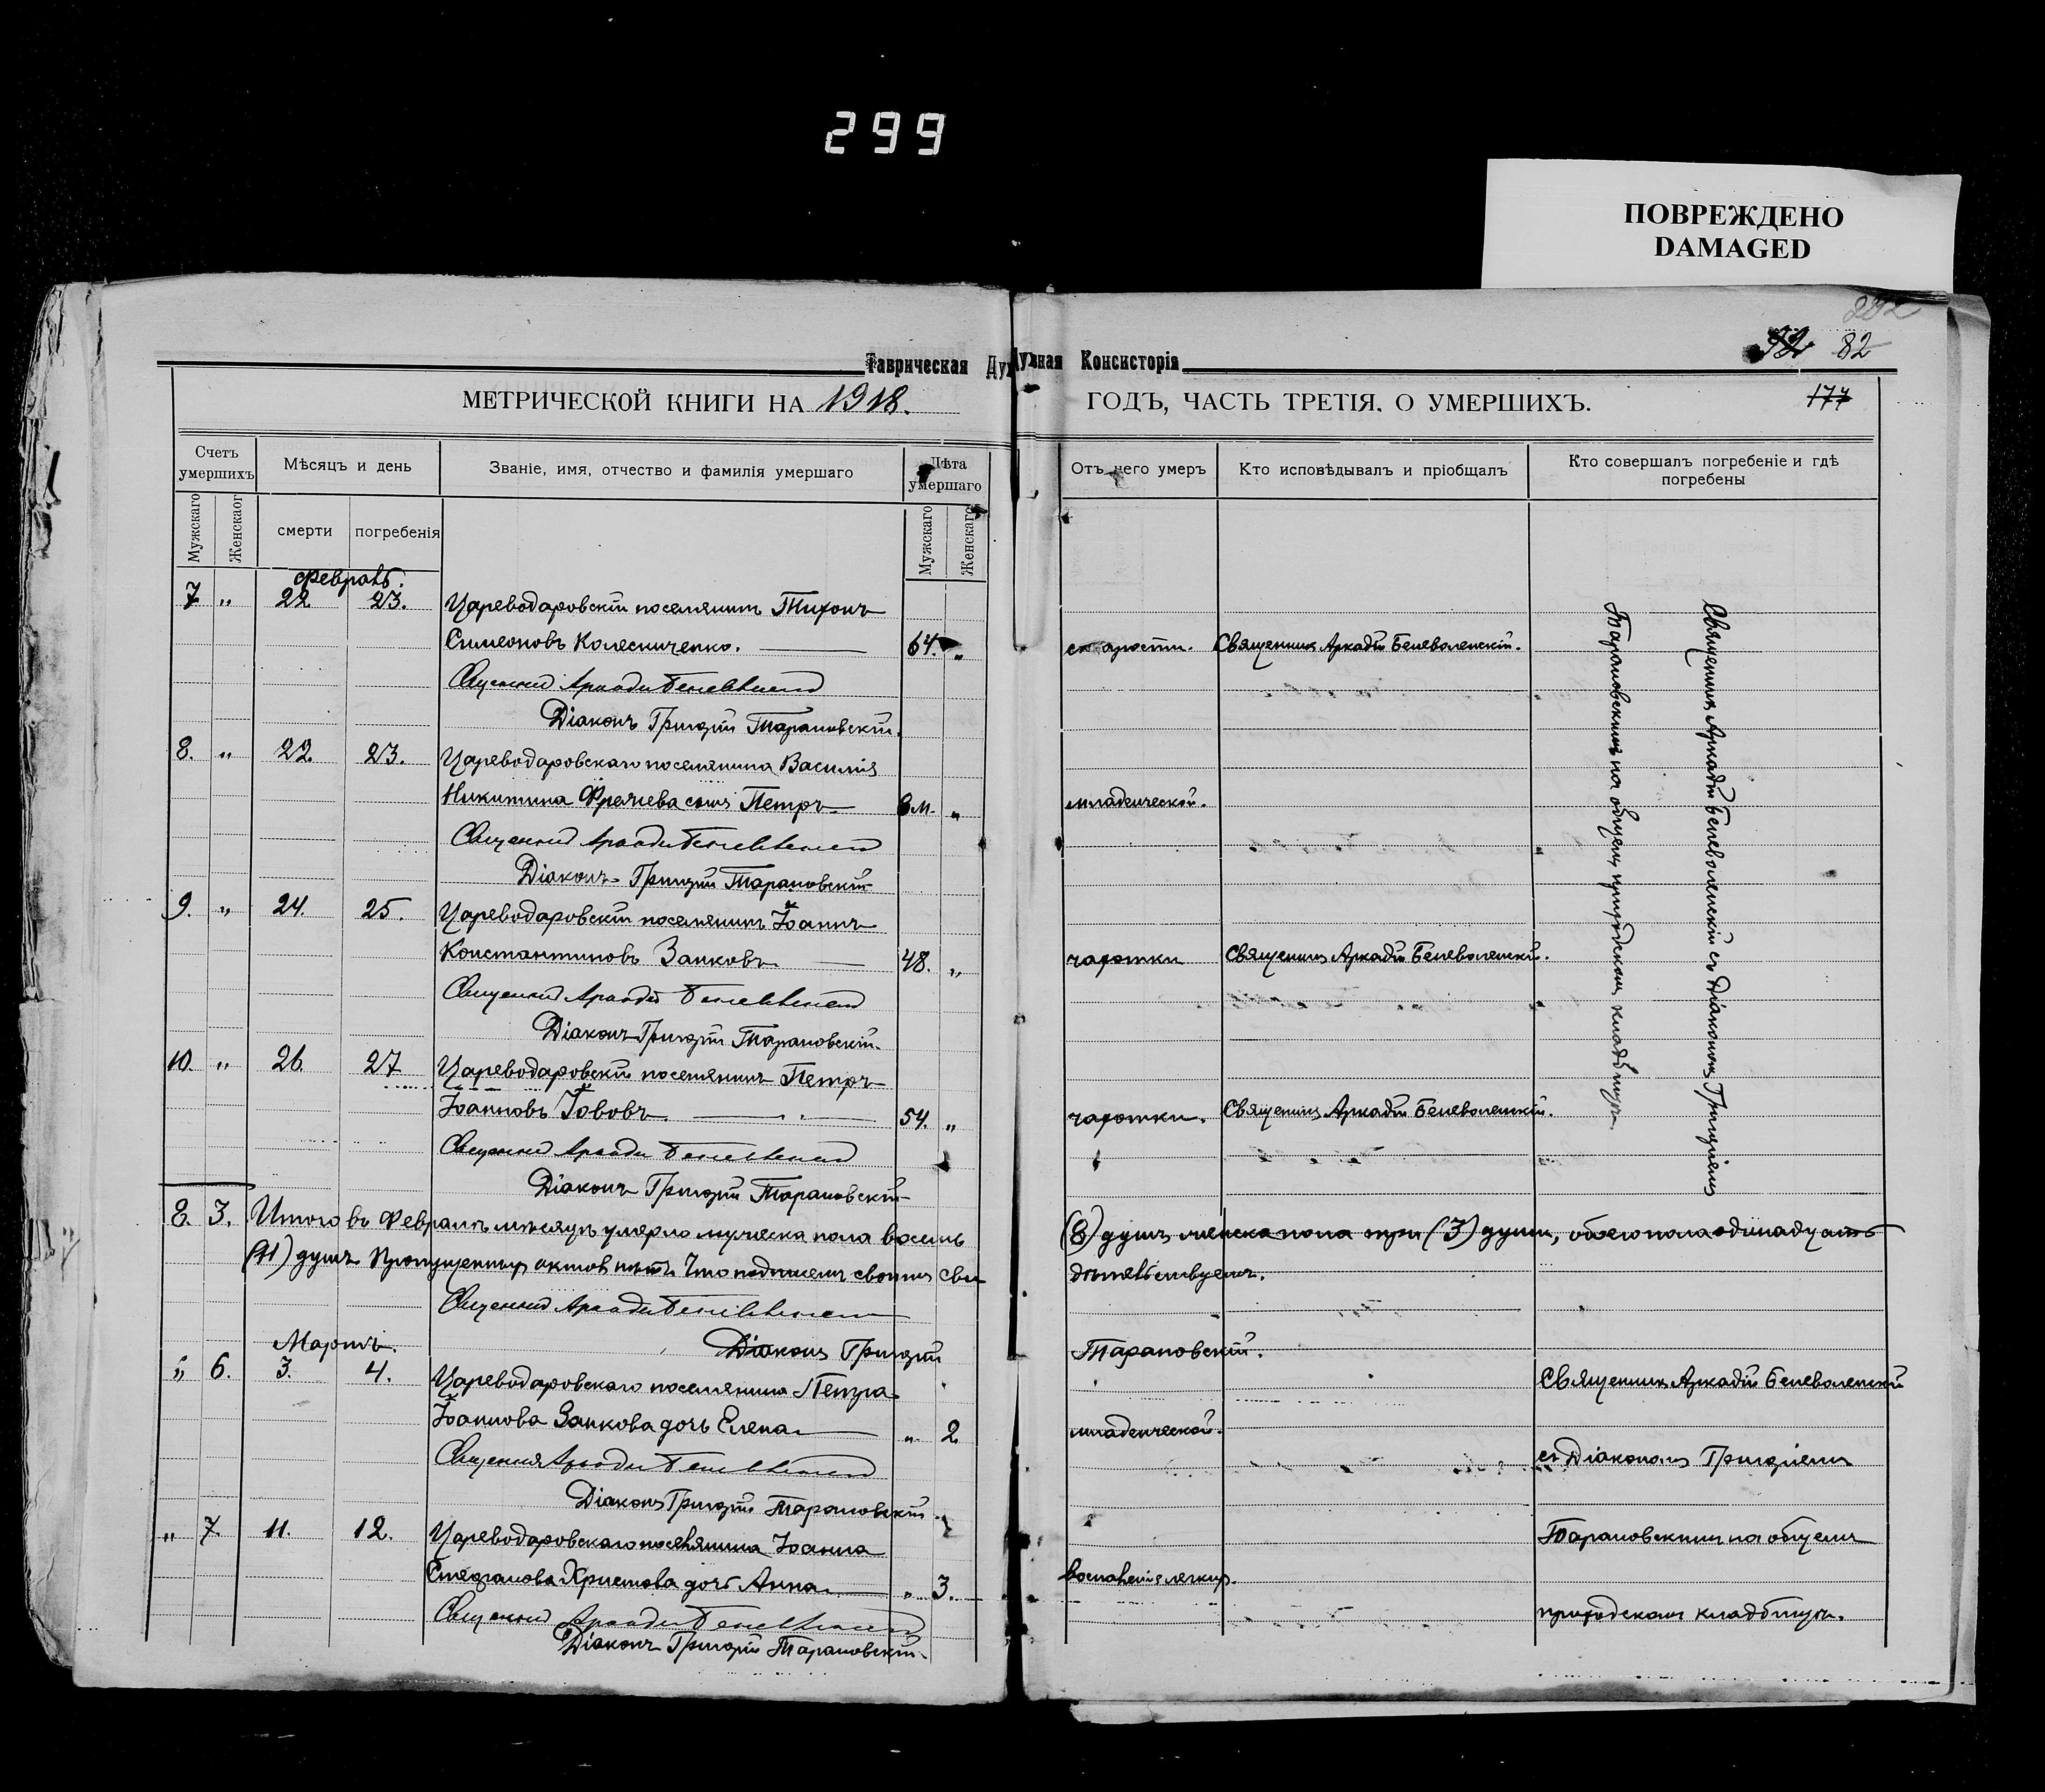 299
ПОВРЕЖДЕНО
DAMAGED
82
Таврическая Духовная Консисторія
МЕТРИЧЕСКОЙ КНИГИ НА 1918. ГОДЪ, ЧАСТЬ ТРЕТІЯ. О УМЕРШИХЪ.
177
Счетъ умершихъ
Мужскаго
Женскаог
Мѣсяцъ и день
смерти
погребенія
Званіе, имя, отчество и фамилія умершаго
Лѣта умершаго
Мужскаго
Женскаго
Отъ чего умеръ
Кто исповѣдывалъ и пріобщалъ
Кто совершалъ погребеніе и гдѣ погребены
Февраль.
7 " 22 23. Цареводаровскій поселянинъ Тихонъ
Симеоновъ Колесниченко. 64. " старости. Священникъ Аркадій Беневоленскій.
Священникъ Аркадій Беневоленскій
Діаконъ Григорій Тарановскій.
8. " 22. 23. Цареводаровскаго поселянина Василія
Никитина сынъ Петръ 8 м. " младенческой.
Священникъ Аркадій Беневоленскій
Діаконъ Григорій Тарановскій
9. " 24. 25. Цареводаровскій поселянинъ Іоаннъ
Константиновъ Занковъ 48. " чахотки Священникъ Аркадій Беневоленскій.
Священникъ Аркадій Беневоленскій
Діаконъ Григорій Тарановскій.
10. " 26 27 Цареводаровскій поселянинъ Петръ
Іоанновъ Говоръ 54. " чахотки. Священникъ Аркадій Беневоленскій.
Священникъ Аркадій Беневоленскій
Діаконъ Григорій Тарановскій
Священникъ Аркадій Беневоленскій съ Діакономъ Григоріемъ
Тарановскимъ на общемъ приходскомъ кладбищѣ.
8. 3. Итого въ Февралѣ мѣсяцѣ умерло мужеска пола восемь (8) душъ женска пола три (3) души, обоего пола одинадцать
(11) душъ. Пропущенныхъ актовъ нѣтъ. Что подписомъ своимъ свидѣтельствуемъ.
Священникъ Аркадій Беневоленскій
Діаконъ Григорій Тарановскій.
Мартъ.
" 6. 3. 4. Цареводаровскаго поселянина Петра
Іоаннова Занкова дочь Елена " 2 младенческой.
Священникъ Аркадій Беневоленскій
Діаконъ Григорій Тарановскій.
Священникъ Аркадій Беневоленскій
съ Діакономъ Григоріемъ
" 7. 11. 12. Цареводаровскаго поселянина Іоанна
Стефанова Христова дочь Анна " 3. воспаленія легкихъ.
Священникъ Аркадій Беневоленскій
Діаконъ Григорій Тарановскій.
Тарановскимъ на общемъ
приходскомъ кладбищѣ.